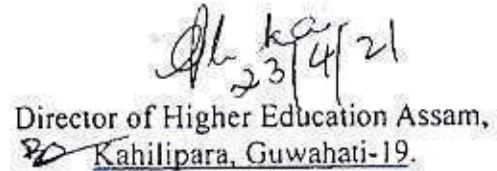 23/4/21
Director of Higher Education Assam,
Kahilipara, Guwahati-19.